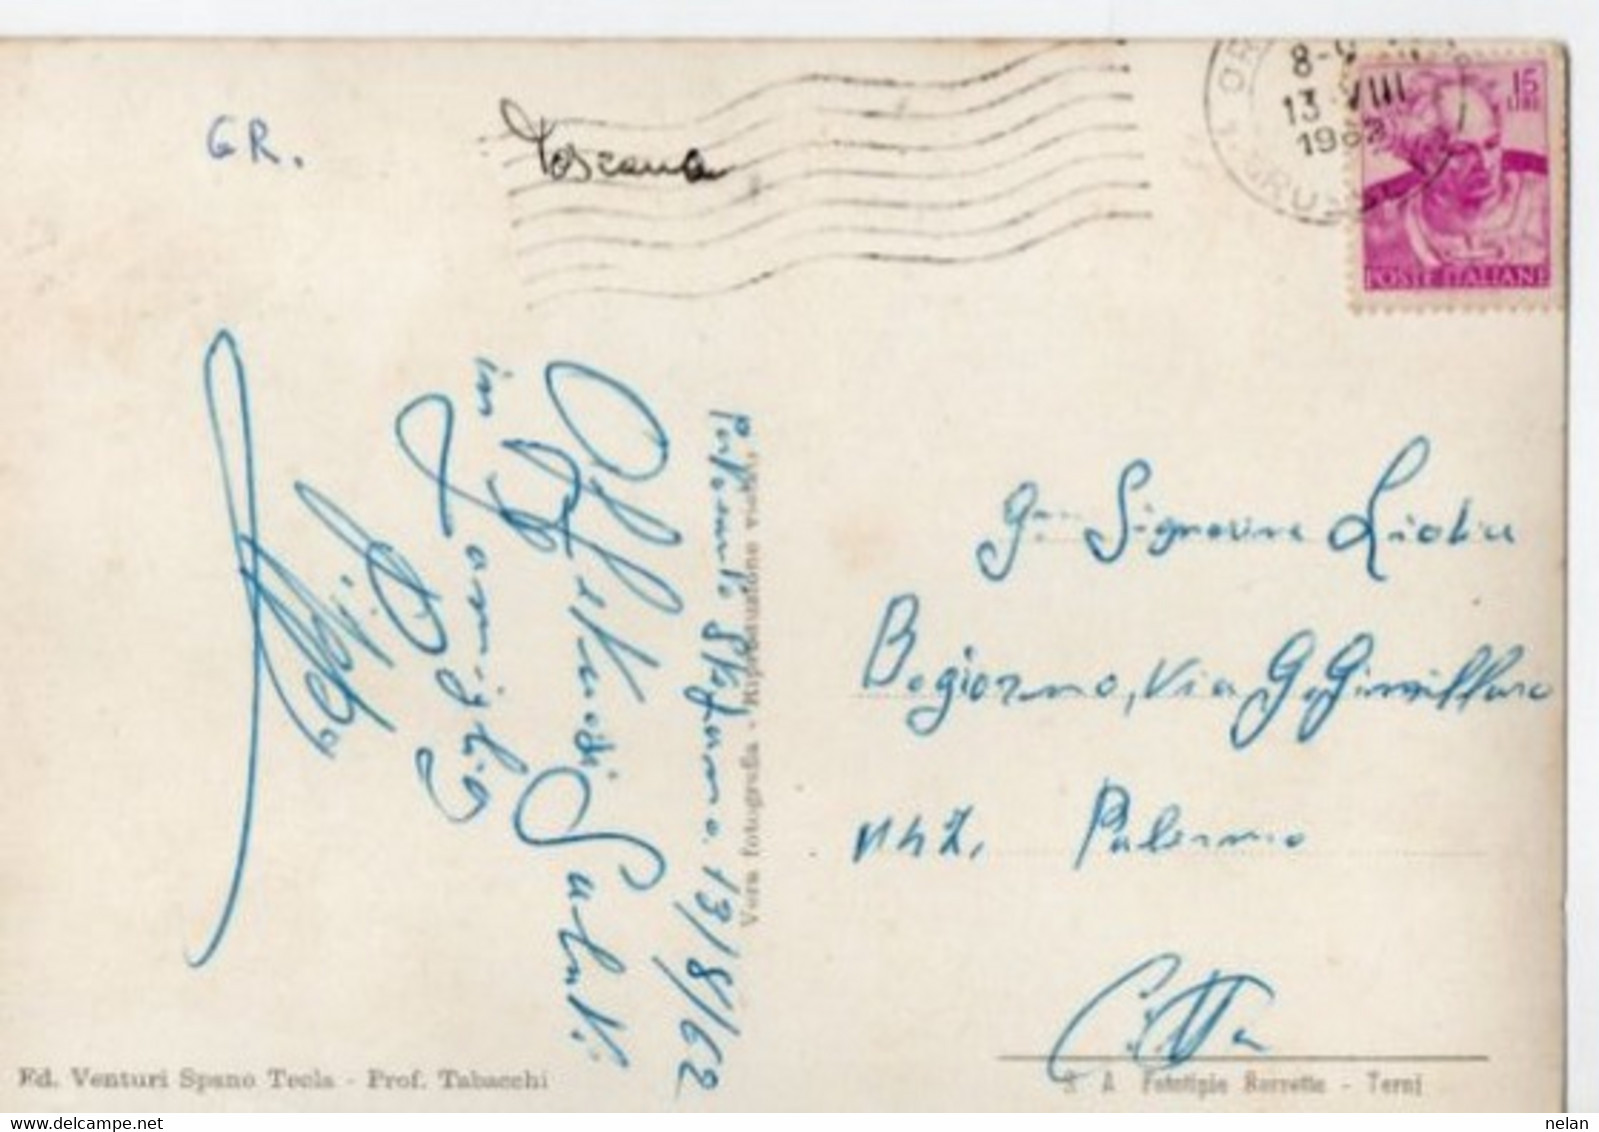 GR.
Toscana
8-9
13 VIII
1962
15
LIRE
POSTE ITALIANE
Porto Santo Stefano. 13/8/62
Affettuosi Saluti
in
famiglia
Vera fotografia - Riproduzione viet.
G. Signorina
Bogiorno, Via G.
Palermo
Città
Ed. Venturi Spano Tecla - Prof. Tabacchi
S. A. Fototipie Berretta - Terni
https://www.delcampe.net
nelan